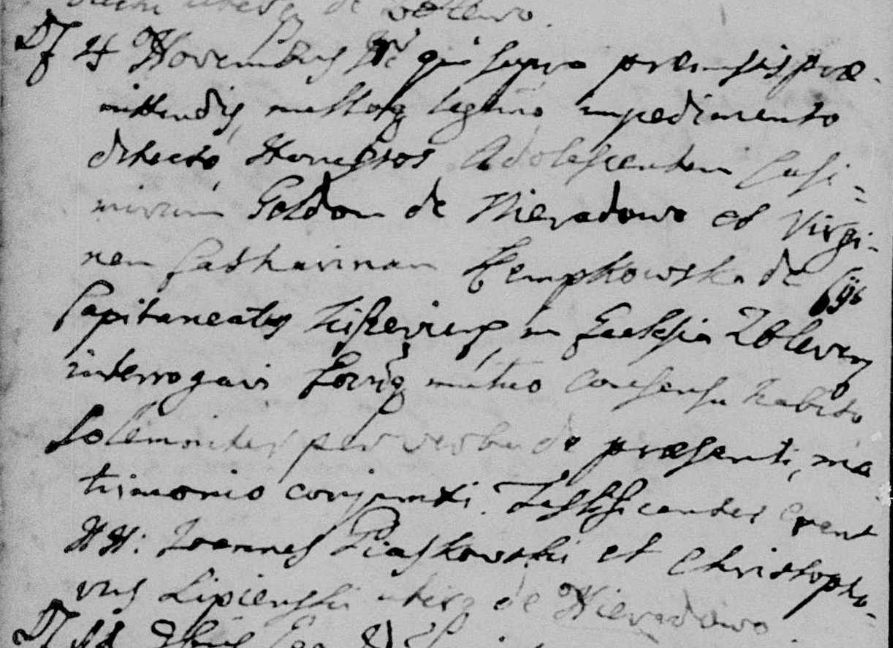 de Zblewo.
Df 4 Novembris Idē qui supra præmissis præ-
mittendis, nulloq legitimo impedimento
detecto, Honestos Adolescentem Casi=
mirum Goldon de Nieradowo et Virgi-
nem Catharinam Kempkowska de
Capitaneatus in Ecclesia Zbleven
interrogavi Eorūq mutuo consensu habito
Solemniter per verba de præsenti, ma
trimonio conjunxi. Testificantes erant
HH: Joannes Piaskowski et Christopho-
rus Lipienski uterq de Nieradowo.
Df